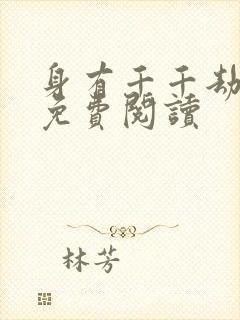 身有千千劫
免費閱讀
林芳